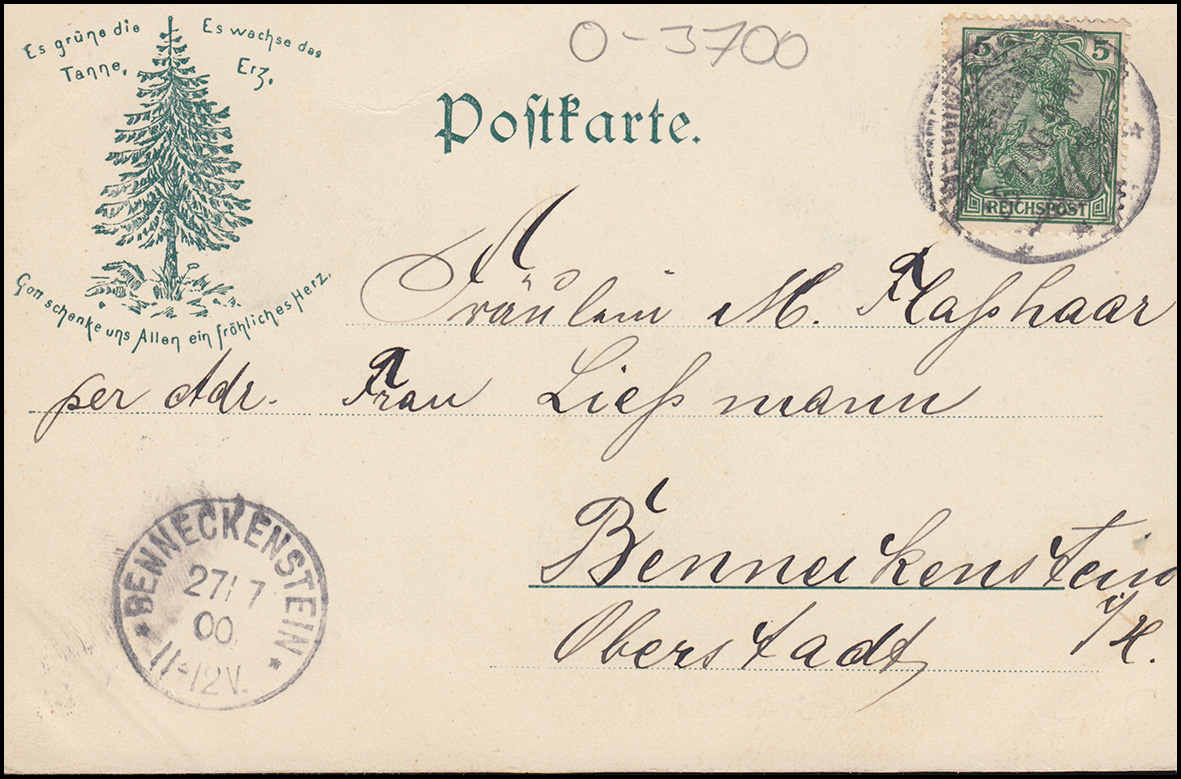 Es grüne die Tanne,
Es wachse das Erz,
Gott schenke uns Allen ein fröhliches Herz,
O-3700
Postkarte.
5 5
REICHSPOST
Fräulein M. Flaßhaar
per Adr. Frau Ließmann
Benneckenstein
i/H.
Oberstadt
BENNECKENSTEIN
27/7
00
11-12V.